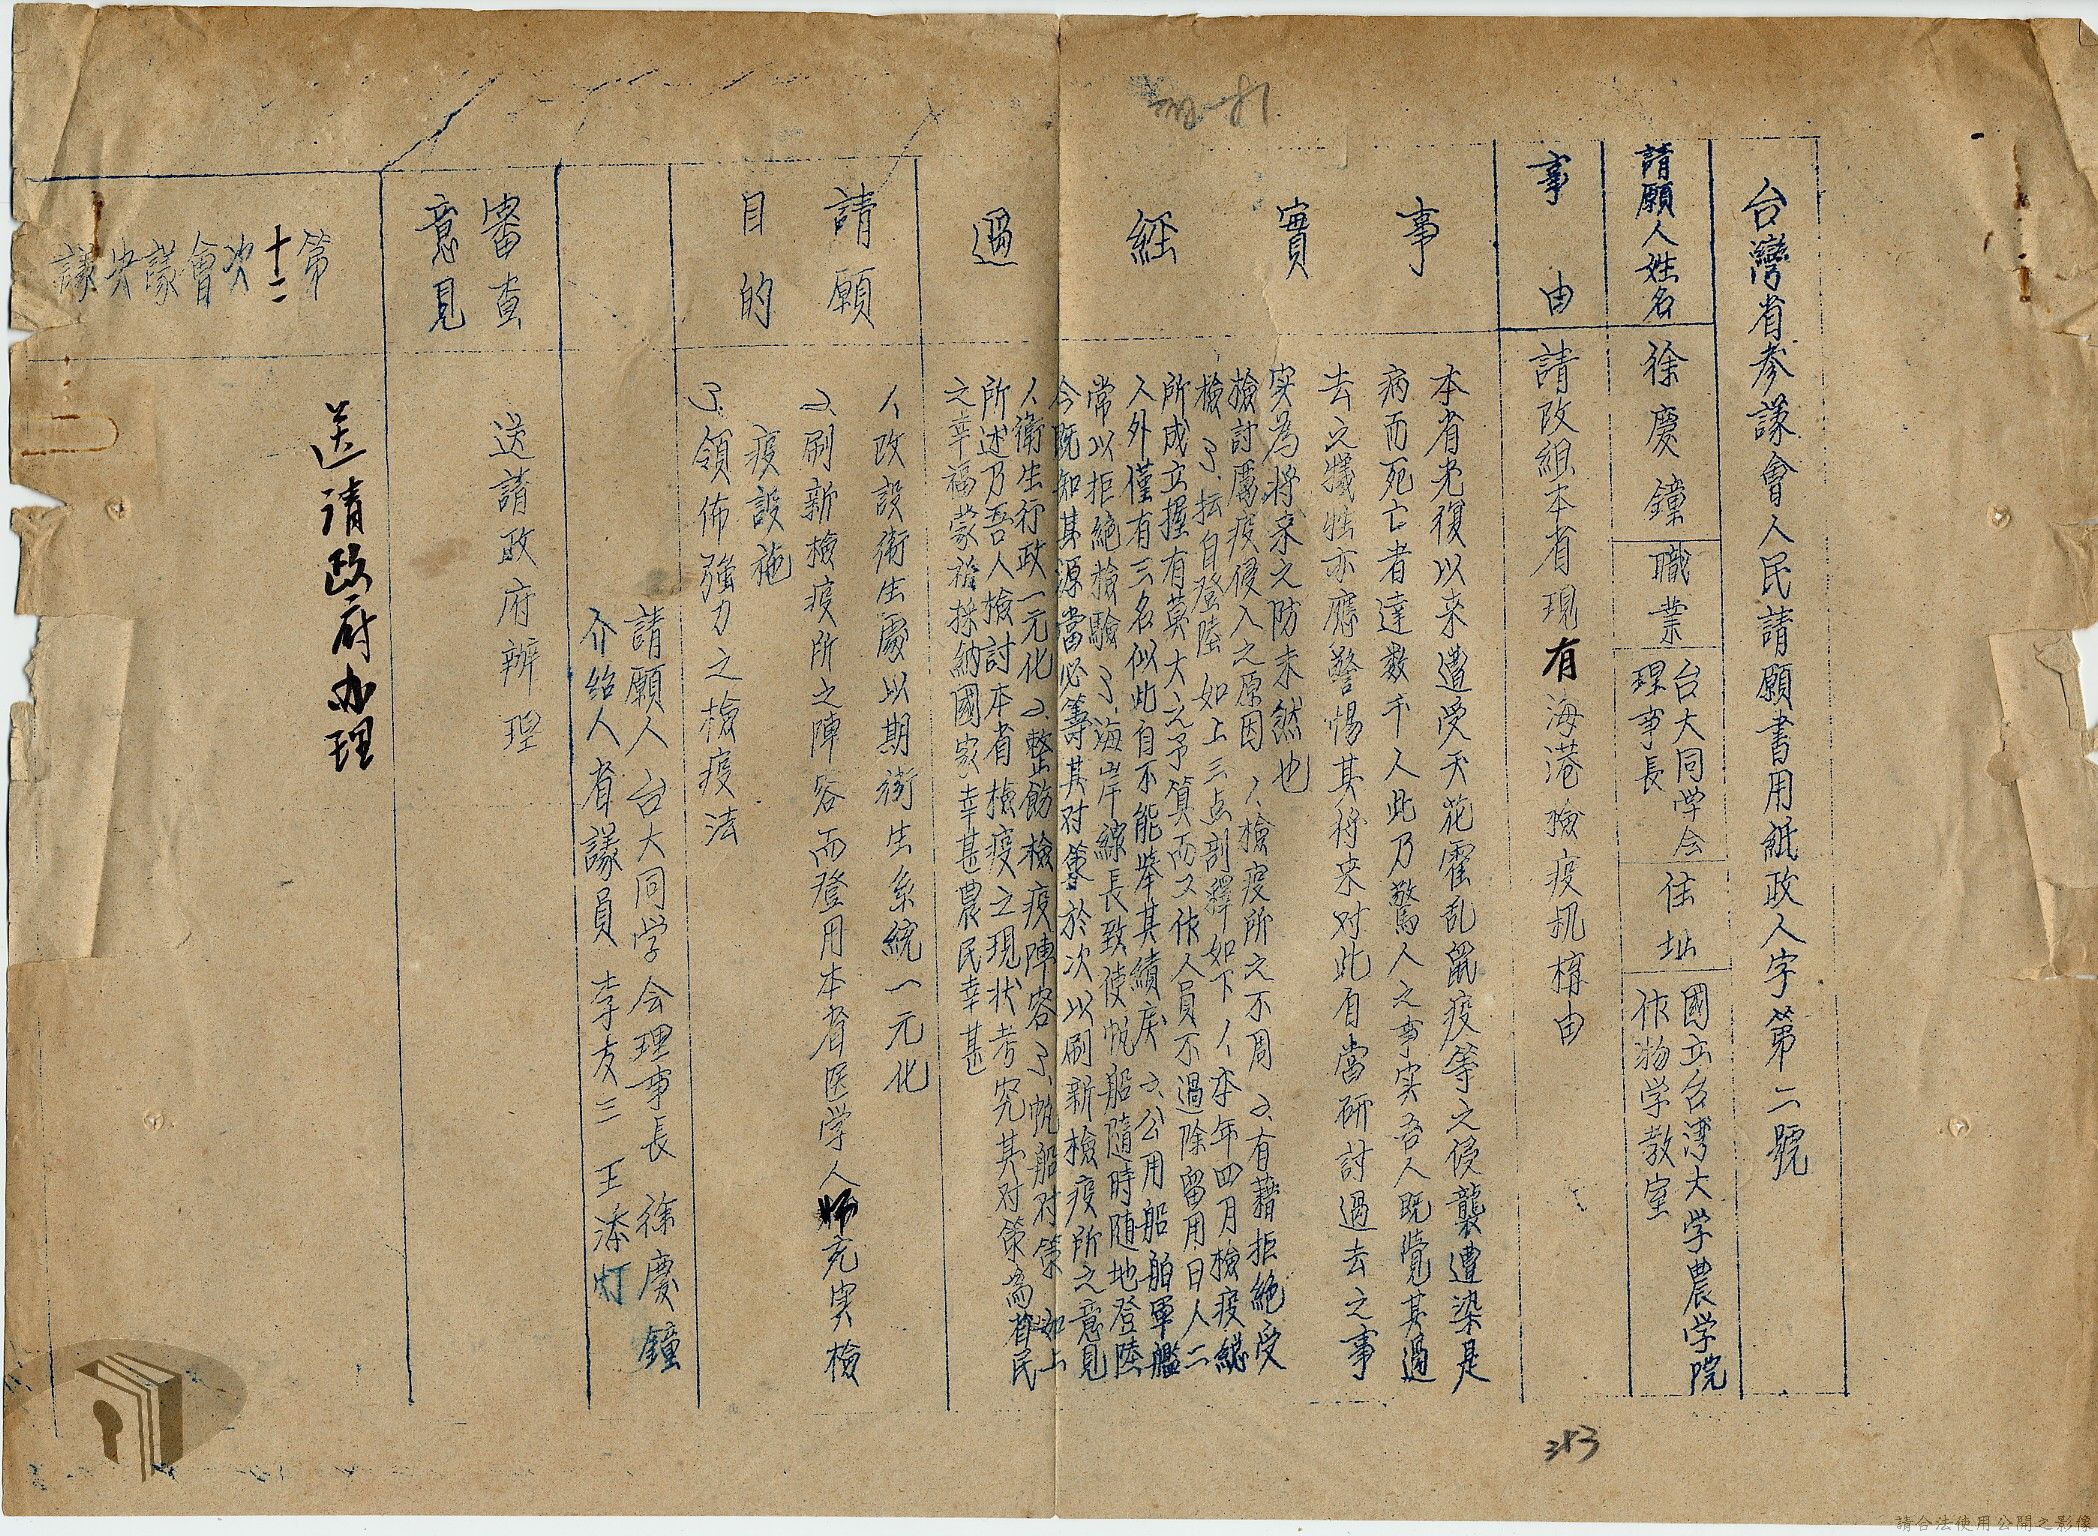 台灣省參議會人民請願書用紙政人字第二號
請願人姓名
徐慶鐘
職業
台大同学会
理事長
住址
國立台湾大学農学院
作物学教室
事由
請改組本省現有海港檢疫机構由
事實經過
本省光復以来遭受天花霍乱鼠疫等之侵襲遭染是
病而死亡者達数千人此乃驚人之事实吾人既覺其過
去之犠牲亦應警惕其将来对此自當研討過去之事
实為将来之防未然也
檢討厲疫侵入之原因 1、檢疫所之不周 2、有藉拒絶受
檢 3、抎自登陸 如上三点剖釋如下 1、本年四月檢疫総
所成立握有莫大之予算而又作人員不過除留用日人二
人外僅有三名似此自不能举其績戻 2、公用船舶軍艦
常以拒絶檢驗 3、海岸線長致使帆船隨時随地登陸
今既知其源當必籌其对策於次以刷新檢疫所之意見
1、衛生行政一元化 2、整飭檢疫陣容 3、帆船对策 如上
所述乃吾人檢討本省檢疫之現状考究其対策為省民
之幸福蒙採納國家幸甚農民幸甚
請願目的
1、改設衛生處以期衛生系統一元化
2、刷新檢疫所之陣容而登用本省医学人師充实檢
疫設施
3、領佈強力之檢疫法
請願人 台大同学会理事長 徐慶鐘
介紹人 省議員 李友三 王添灯
審查意見
送請政府辦理
第十二次會議決議
送請政府办理
383
請合法使用公開之影像